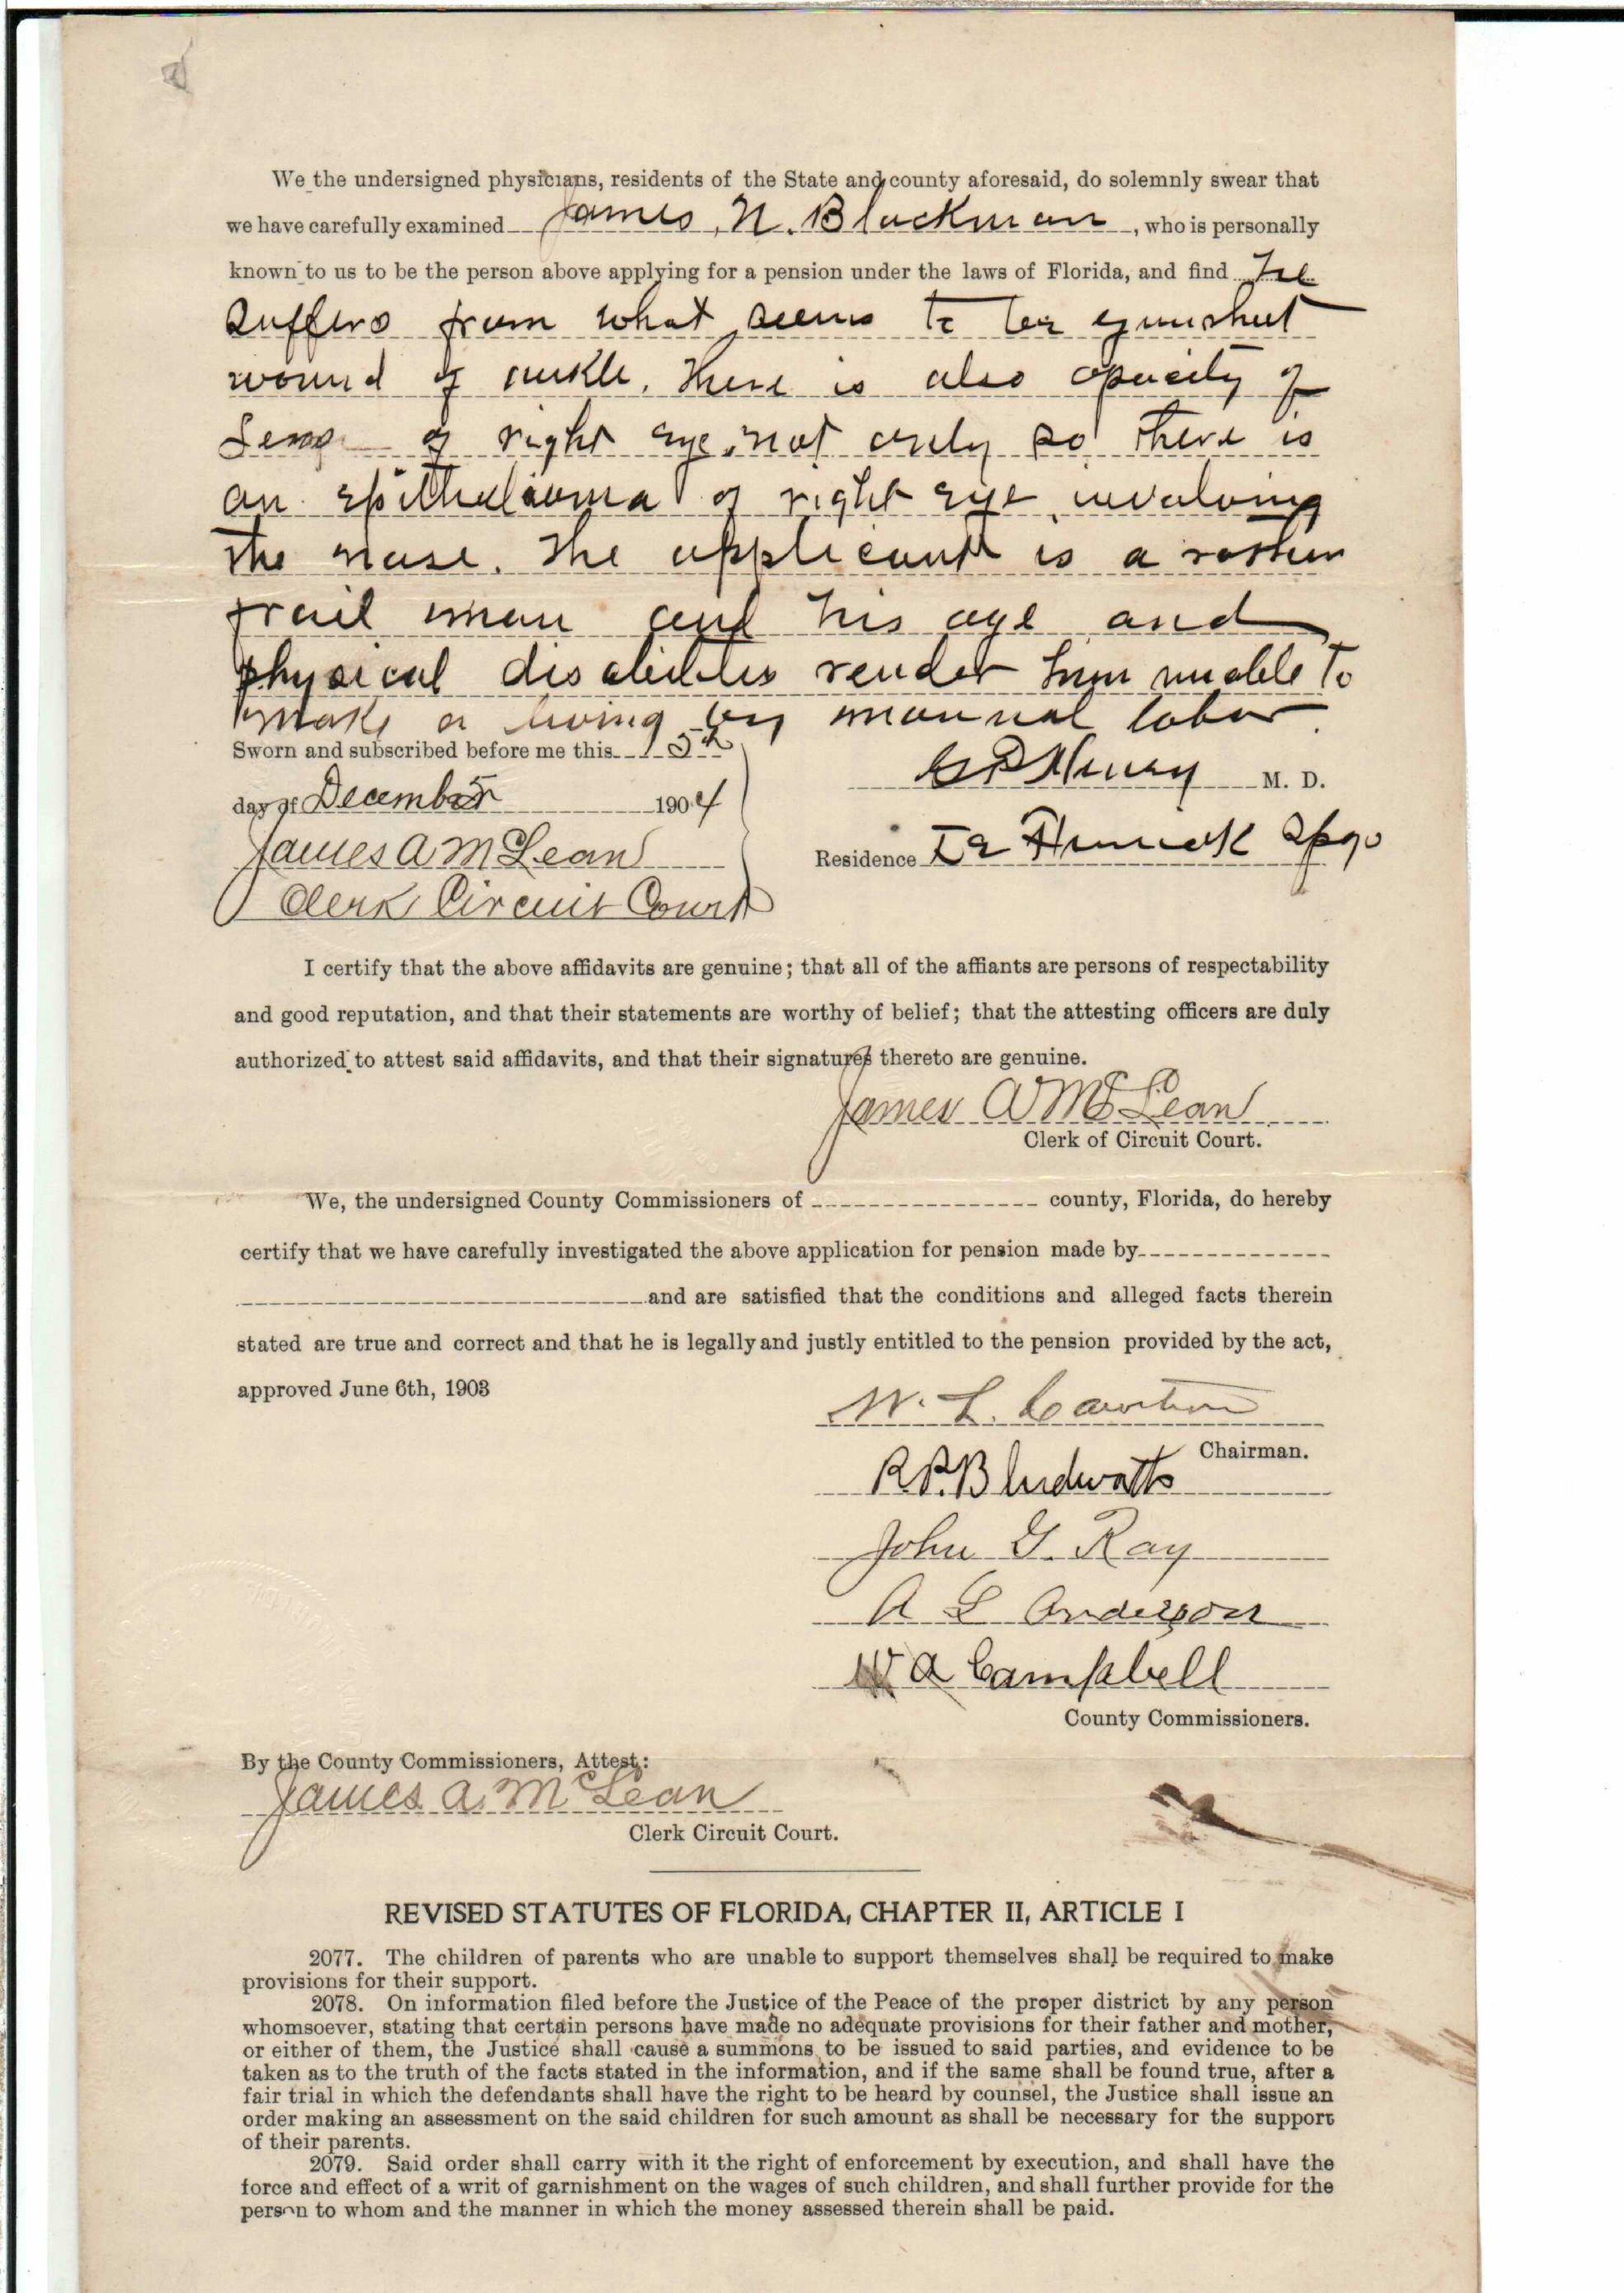 We the undersigned physicians, residents of the State and county aforesaid, do solemnly swear that
we have carefully examined James N. Blackman, who is personally
known to us to be the person above applying for a pension under the laws of Florida, and find he
suffers from what seems to be gunshot
wound of ankle. There is also opacity of
Lens of right eye, not only so there is
an epithelioma of right eye involving
the nose. The applicant is a rather
frail man and his age and
physical disabilities render him unable to
make a living by manual labor.
Sworn and subscribed before me this 5th
day of December 1904
James A McLean
Clerk Circuit Court
Henry M. D.
Residence De Funiak Spgs
I certify that the above affidavits are genuine; that all of the affiants are persons of respectability
and good reputation, and that their statements are worthy of belief; that the attesting officers are duly
authorized to attest said affidavits, and that their signatures thereto are genuine.
James A McLean
Clerk of Circuit Court.
We, the undersigned County Commissioners of county, Florida, do hereby
certify that we have carefully investigated the above application for pension made by
and are satisfied that the conditions and alleged facts therein
stated are true and correct and that he is legally and justly entitled to the pension provided by the act,
approved June 6th, 1903
W. L. Cawthon
Chairman.
R.P.
John G. Ray
A L Anderson
W A Campbell
County Commissioners.
By the County Commissioners, Attest:
James A. McLean
Clerk Circuit Court.
REVISED STATUTES OF FLORIDA, CHAPTER II, ARTICLE I
2077. The children of parents who are unable to support themselves shall be required to make
provisions for their support.
2078. On information filed before the Justice of the Peace of the proper district by any person
whomsoever, stating that certain persons have made no adequate provisions for their father and mother,
or either of them, the Justice shall cause a summons to be issued to said parties, and evidence to be
taken as to the truth of the facts stated in the information, and if the same shall be found true, after a
fair trial in which the defendants shall have the right to be heard by counsel, the Justice shall issue an
order making an assessment on the said children for such amount as shall be necessary for the support
of their parents.
2079. Said order shall carry with it the right of enforcement by execution, and shall have the
force and effect of a writ of garnishment on the wages of such children, and shall further provide for the
person to whom and the manner in which the money assessed therein shall be paid.